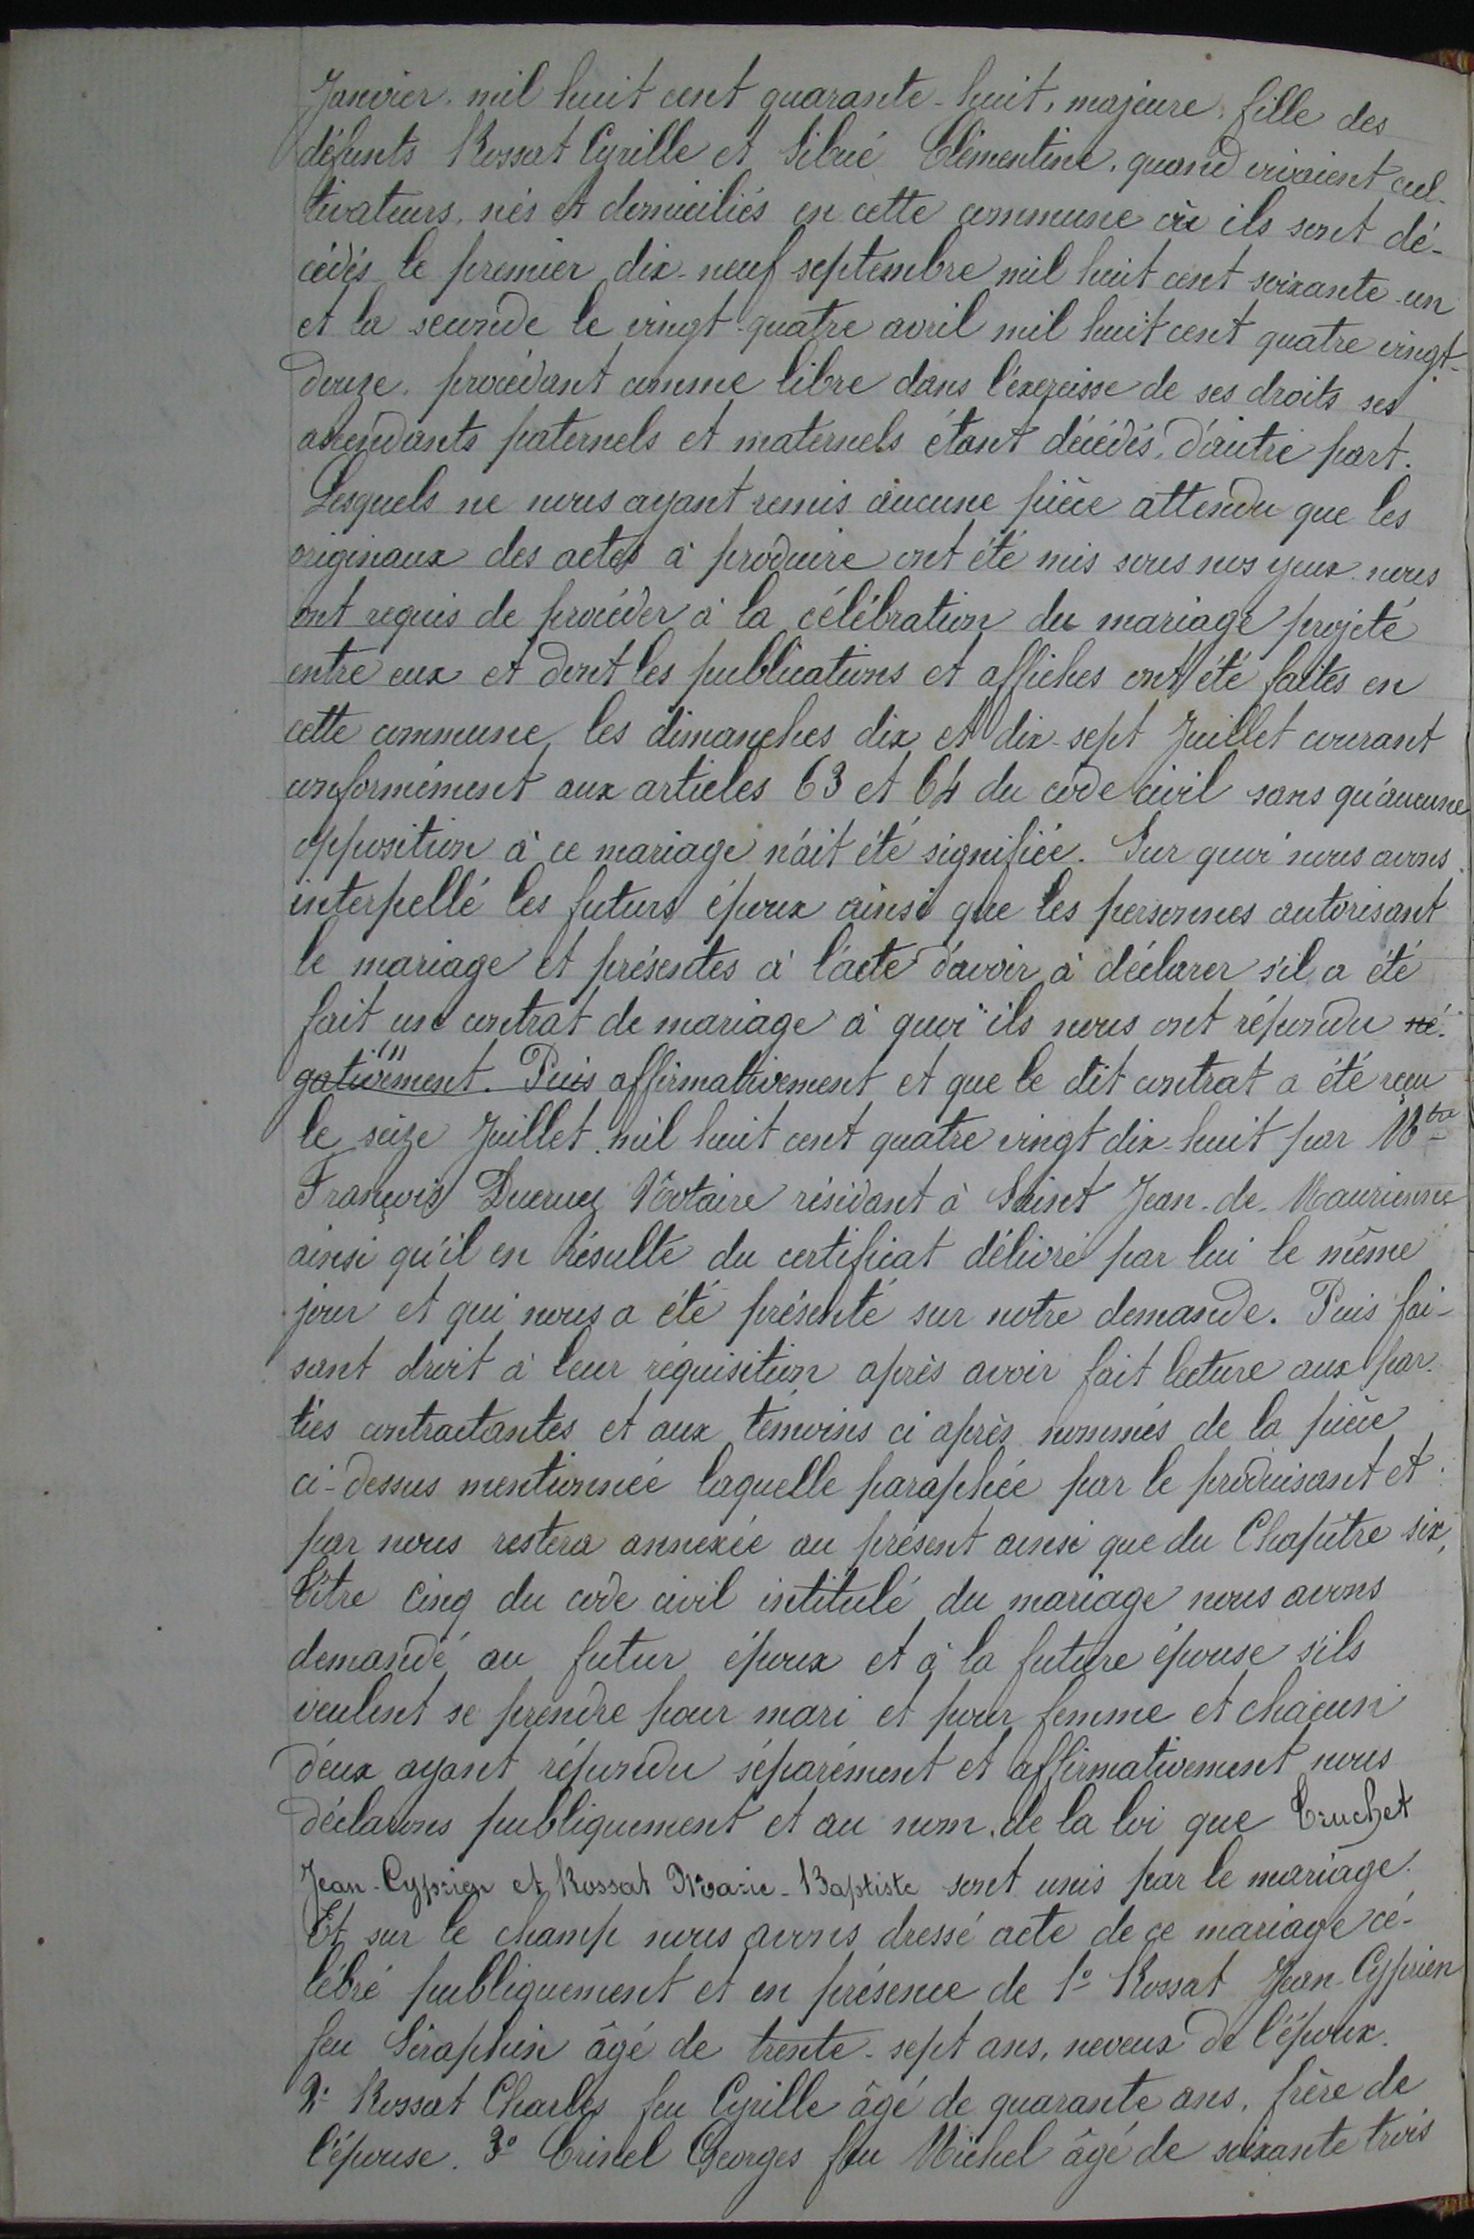 Janvier mil huit cent quarante-huit, majeure, fille des
défunts Rossat Cyrille et Sibué Clémentine, quand vivaient cul-
tivateurs, nés et domiciliés en cette commune où ils sont dé-
cédés le premier dix-neuf septembre mil huit cent soixante-un
et la seconde le vingt-quatre avril mil huit cent quatre vingt-
douze, procédant comme libre dans l'exercisse de ses droits ses
ascendants paternels et maternels étant décédés, d'autre part.
Lesquels ne nous ayant remis aucune pièce attendu que les
originaux des actes à produire ont été mis sous nos yeux nous
ont requis de procéder à la célébration du mariage projeté
entre eux et dont les publications et affiches ont été faites en
cette commune les dimanches dix et dix-sept Juillet courant
conformément aux articles 63 et 64 du code civil sans qu'aucune
opposition à ce mariage n'ait été signifiée. Sur quoi nous avons
interpellé les futurs époux ainsi que les personnes autorisant
le mariage et présentes à l'acte d'avoir à déclarer s'il a été
fait un contrat de mariage à quoi ils nous ont répondu né-
gativement. Puis affirmativement et que le dit contrat a été reçu
le seize Juillet mil huit cent quatre vingt dix-huit par Mtre
François Ducruez Notaire résidant à Saint Jean-de-Maurienne
ainsi qu'il en résulte du certificat délivré par lui le même
jour et qui nous a été présenté sur notre demande. Puis fai-
sant droit à leur réquisition après avoir fait lecture aux par-
ties contractantes et aux témoins ci après nommés de la pièce
ci-dessus mentionnée laquelle paraphée par le produisant et
par nous restera annexée au présent ainsi que du Chapître six,
titre cinq du code civil intitulé du mariage nous avons
demandé au futur époux et à la future épouse s'ils
veulent se prendre pour mari et pour femme et chacun
d'eux ayant répondu séparément et affirmativement nous
déclarons publiquement et au nom de la loi que Truchet
Jean-Cyprien et Rossat Marie-Baptiste sont unis par le mariage.
Et sur le champ nous avons dressé acte de ce mariage cé-
lébré publiquement et en présence de 1° Rossat Jean-Cyprien
feu Séraphin âgé de trente-sept ans, neveux de l'époux.
2° Rossat Charles feu Cyrille âgé de quarante ans, frère de
l'épouse. 3° Georges feu Michel âgé de soixante trois